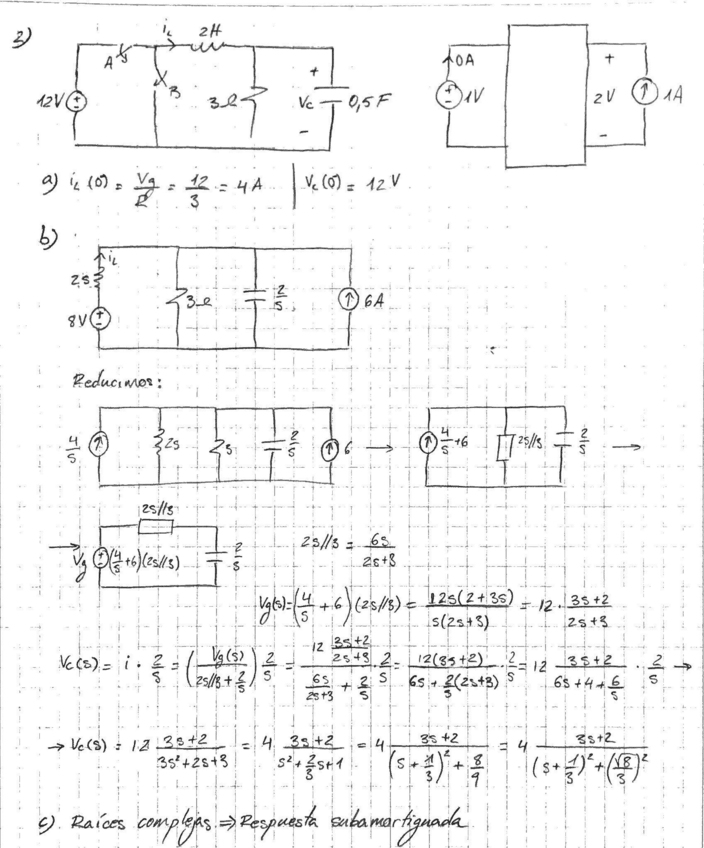 3)
A
i_L
2H
B
12V
3Ω
+
V_c
-
0,5 F
0A
1V
+
2V
-
1A
a) i_L(0) = Vg/R = 12/3 = 4 A | V_c(0) = 12 V
b)
i_L
2s
8V
3Ω
2/s
6A
Reducimos:
4/s
2s
3
2/s
6 →
4/s+6
2s//3
2/s →
→ Vg
(4/s+6)(2s//3)
2s//3
2/s
2s//3 = 6s/(2s+3)
Vg(s) = (4/s + 6)(2s//3) = 12s(2+3s)/(s(2s+3)) = 12 · (3s+2)/(2s+3)
V_c(s) = i · 2/s = (Vg(s)/(2s//3 + 2/s)) 2/s = (12 (3s+2)/(2s+3))/(6s/(2s+3) + 2/s) · 2/s = 12(3s+2)/(6s + 2/s(2s+3)) · 2/s = 12 (3s+2)/(6s+4+6/s) · 2/s →
→ V_c(s) = 12 (3s+2)/(3s²+2s+3) = 4 (3s+2)/(s²+2/3s+1) = 4 (3s+2)/((s+1/3)² + 8/9) = 4 (3s+2)/((s+1/3)² + (√8/3)²)
c) Raíces complejas ⇒ Respuesta subamortiguada